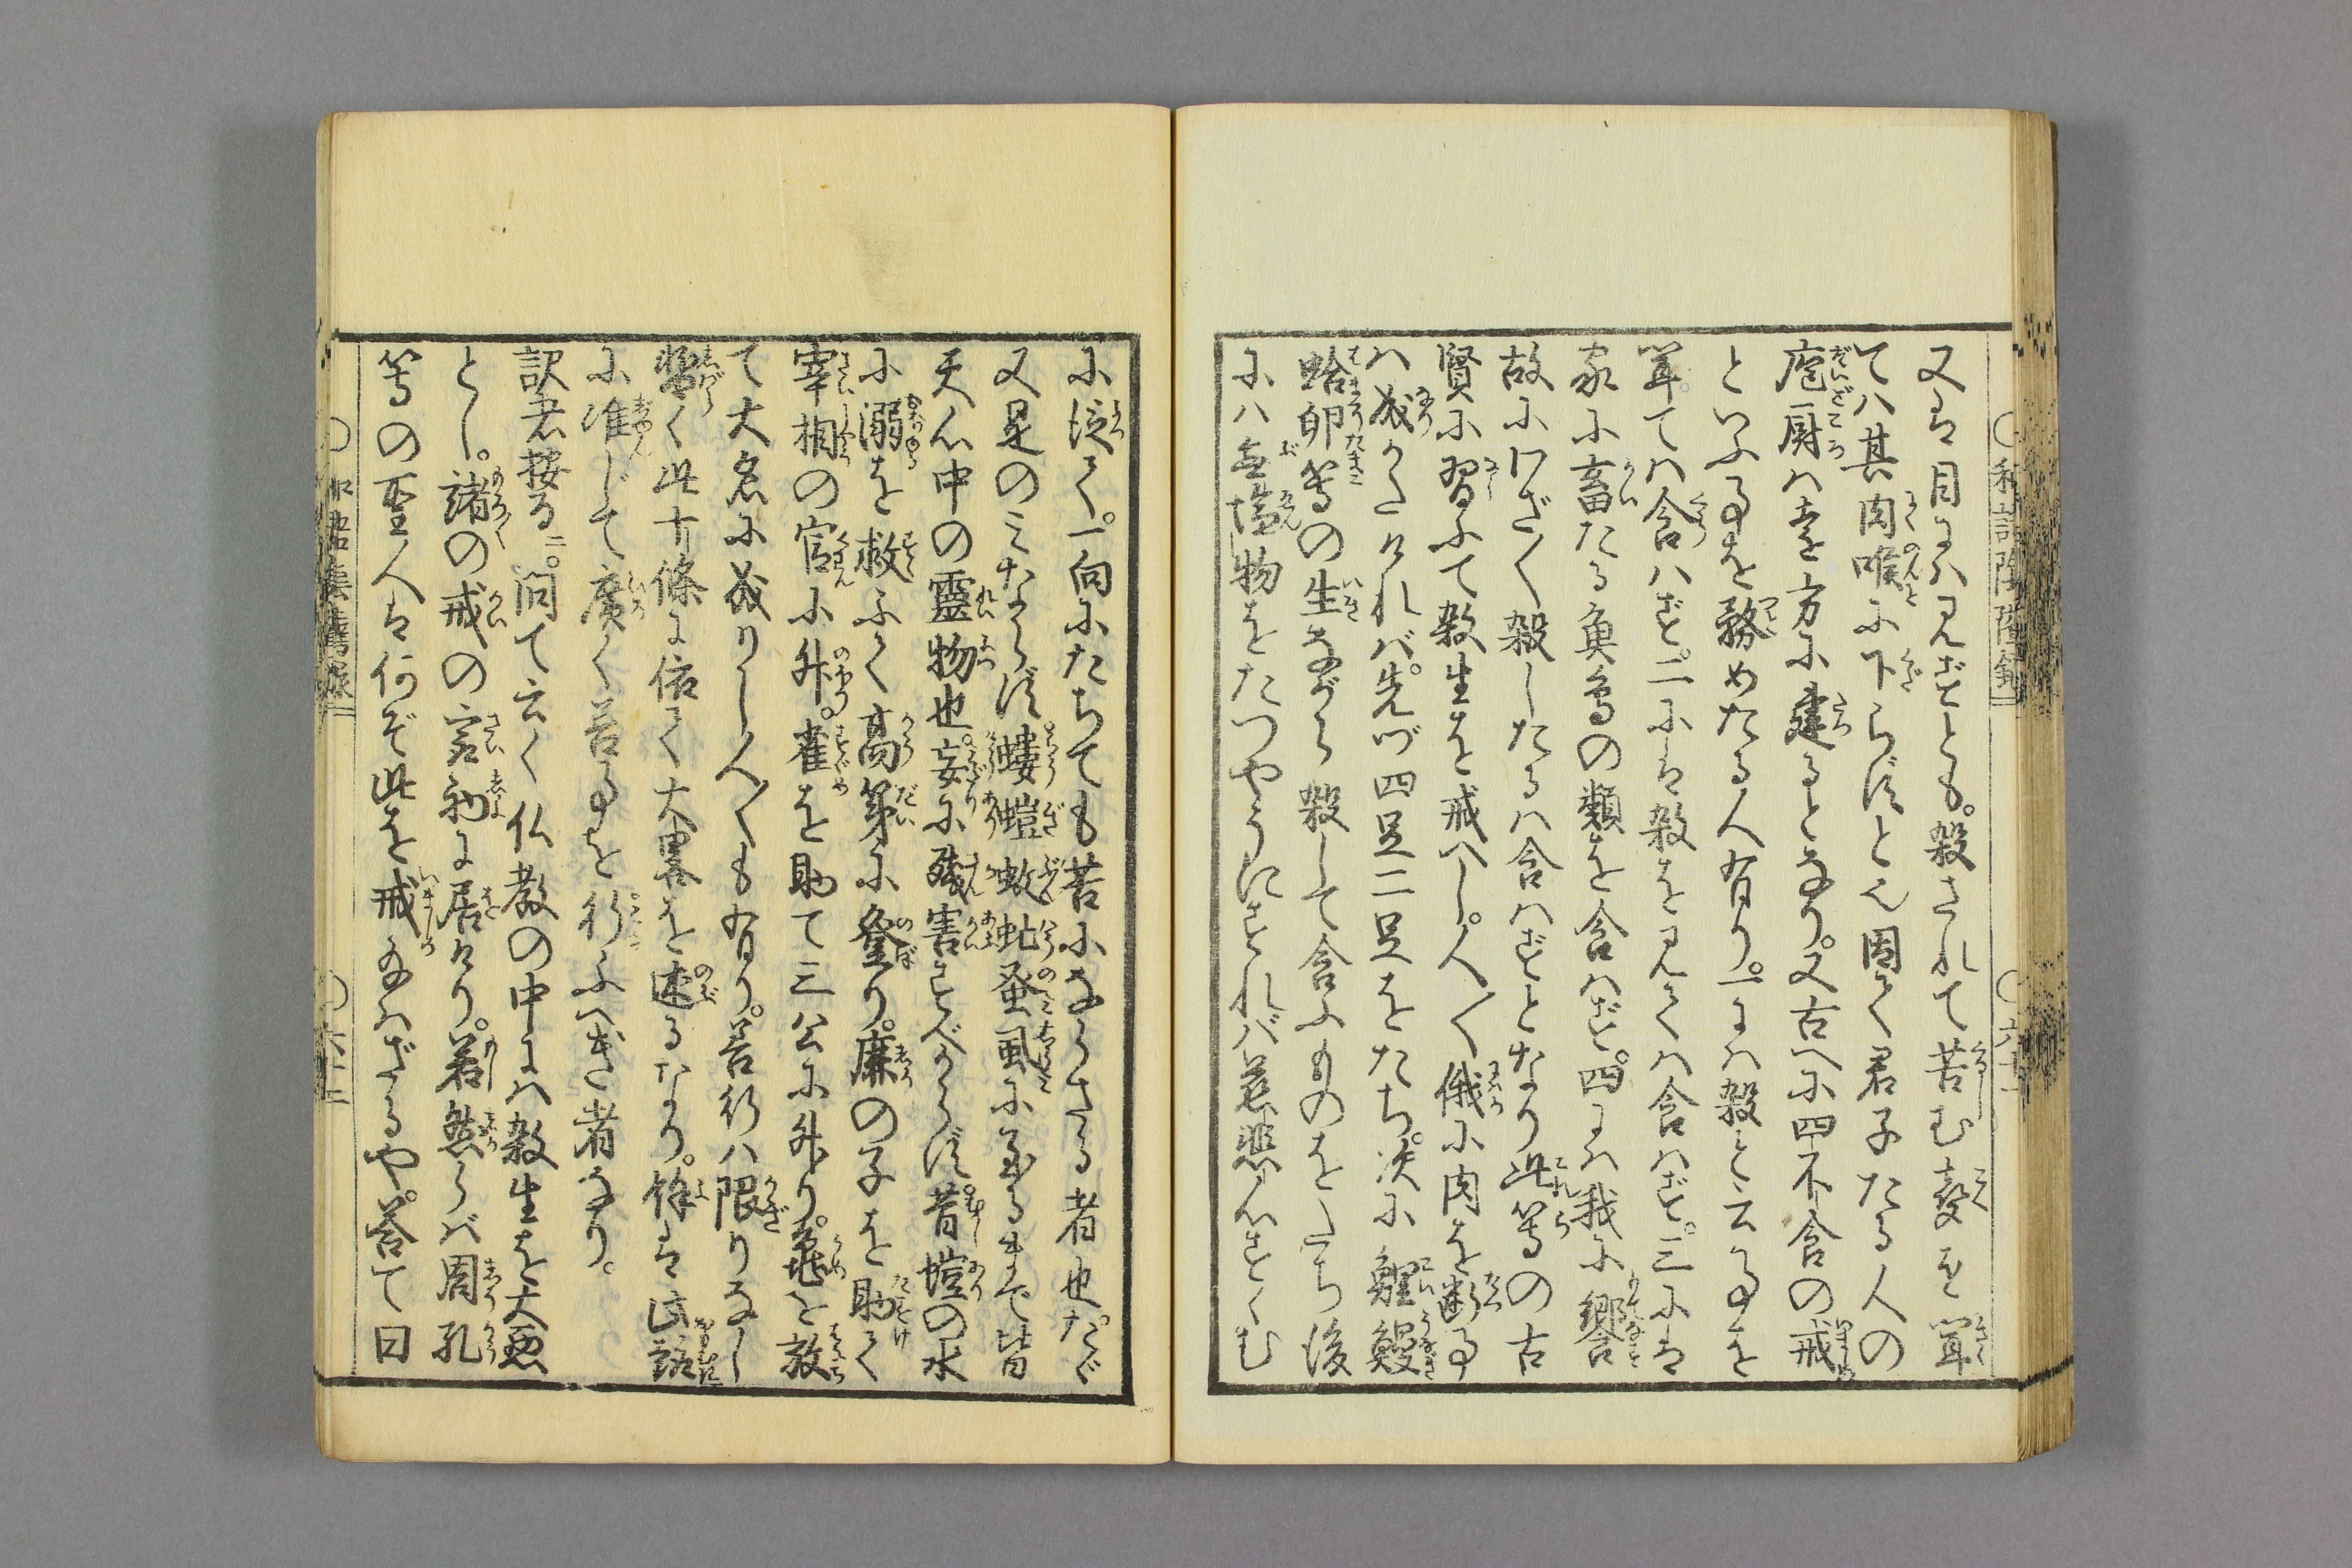 又は目に見ずとも。殺されて苦む聲を聞
ては其肉喉に下らずとや因て君子たる人の
庖厨は遠方に建るとなり。又古へに四不食の戒
といふ事を務めたる人有り。一には殺と云事を
聞ては食はず。二には殺を見ては食はず。三には
家に畜たる魚鳥の類を食はず。四には我に饗
故にわざ〱殺したるは食はずとなり此等の古
賢に習ふて殺生を戒べし。人〱俄に肉を断事
は成がたければ。先づ四足二足をたち。次に鯉鰻
蛤卵等の生ながら殺して食ふものをたち後
には無塩物をたつやうにすれば慈悲心すゝむ
に従て。一向にたちても苦にならざる者也。たゞ
又是のみならず。螻蟻蚊虻蚤虱に至るまで皆
天心中の靈物也。妄に殘害すべからず。昔蟻の水
に溺を救ふて高第に登り。廉の子を助て
宰相の官に升。雀を助て三公に升り。龜を放
て大名に成りし人〱も有り。善行は限りなし
暫く此十條に依て大畧を述るなり。餘は此語
に准じて廣く善事を行ふべき者なり。
訳者按る二。問て云く仏教の中には殺生を大悪
とし。諸の戒の宰初に居けり。若然らば周孔
等の聖人は何ぞ此を戒給はざるや。答て曰
和語陰隲録
六十一